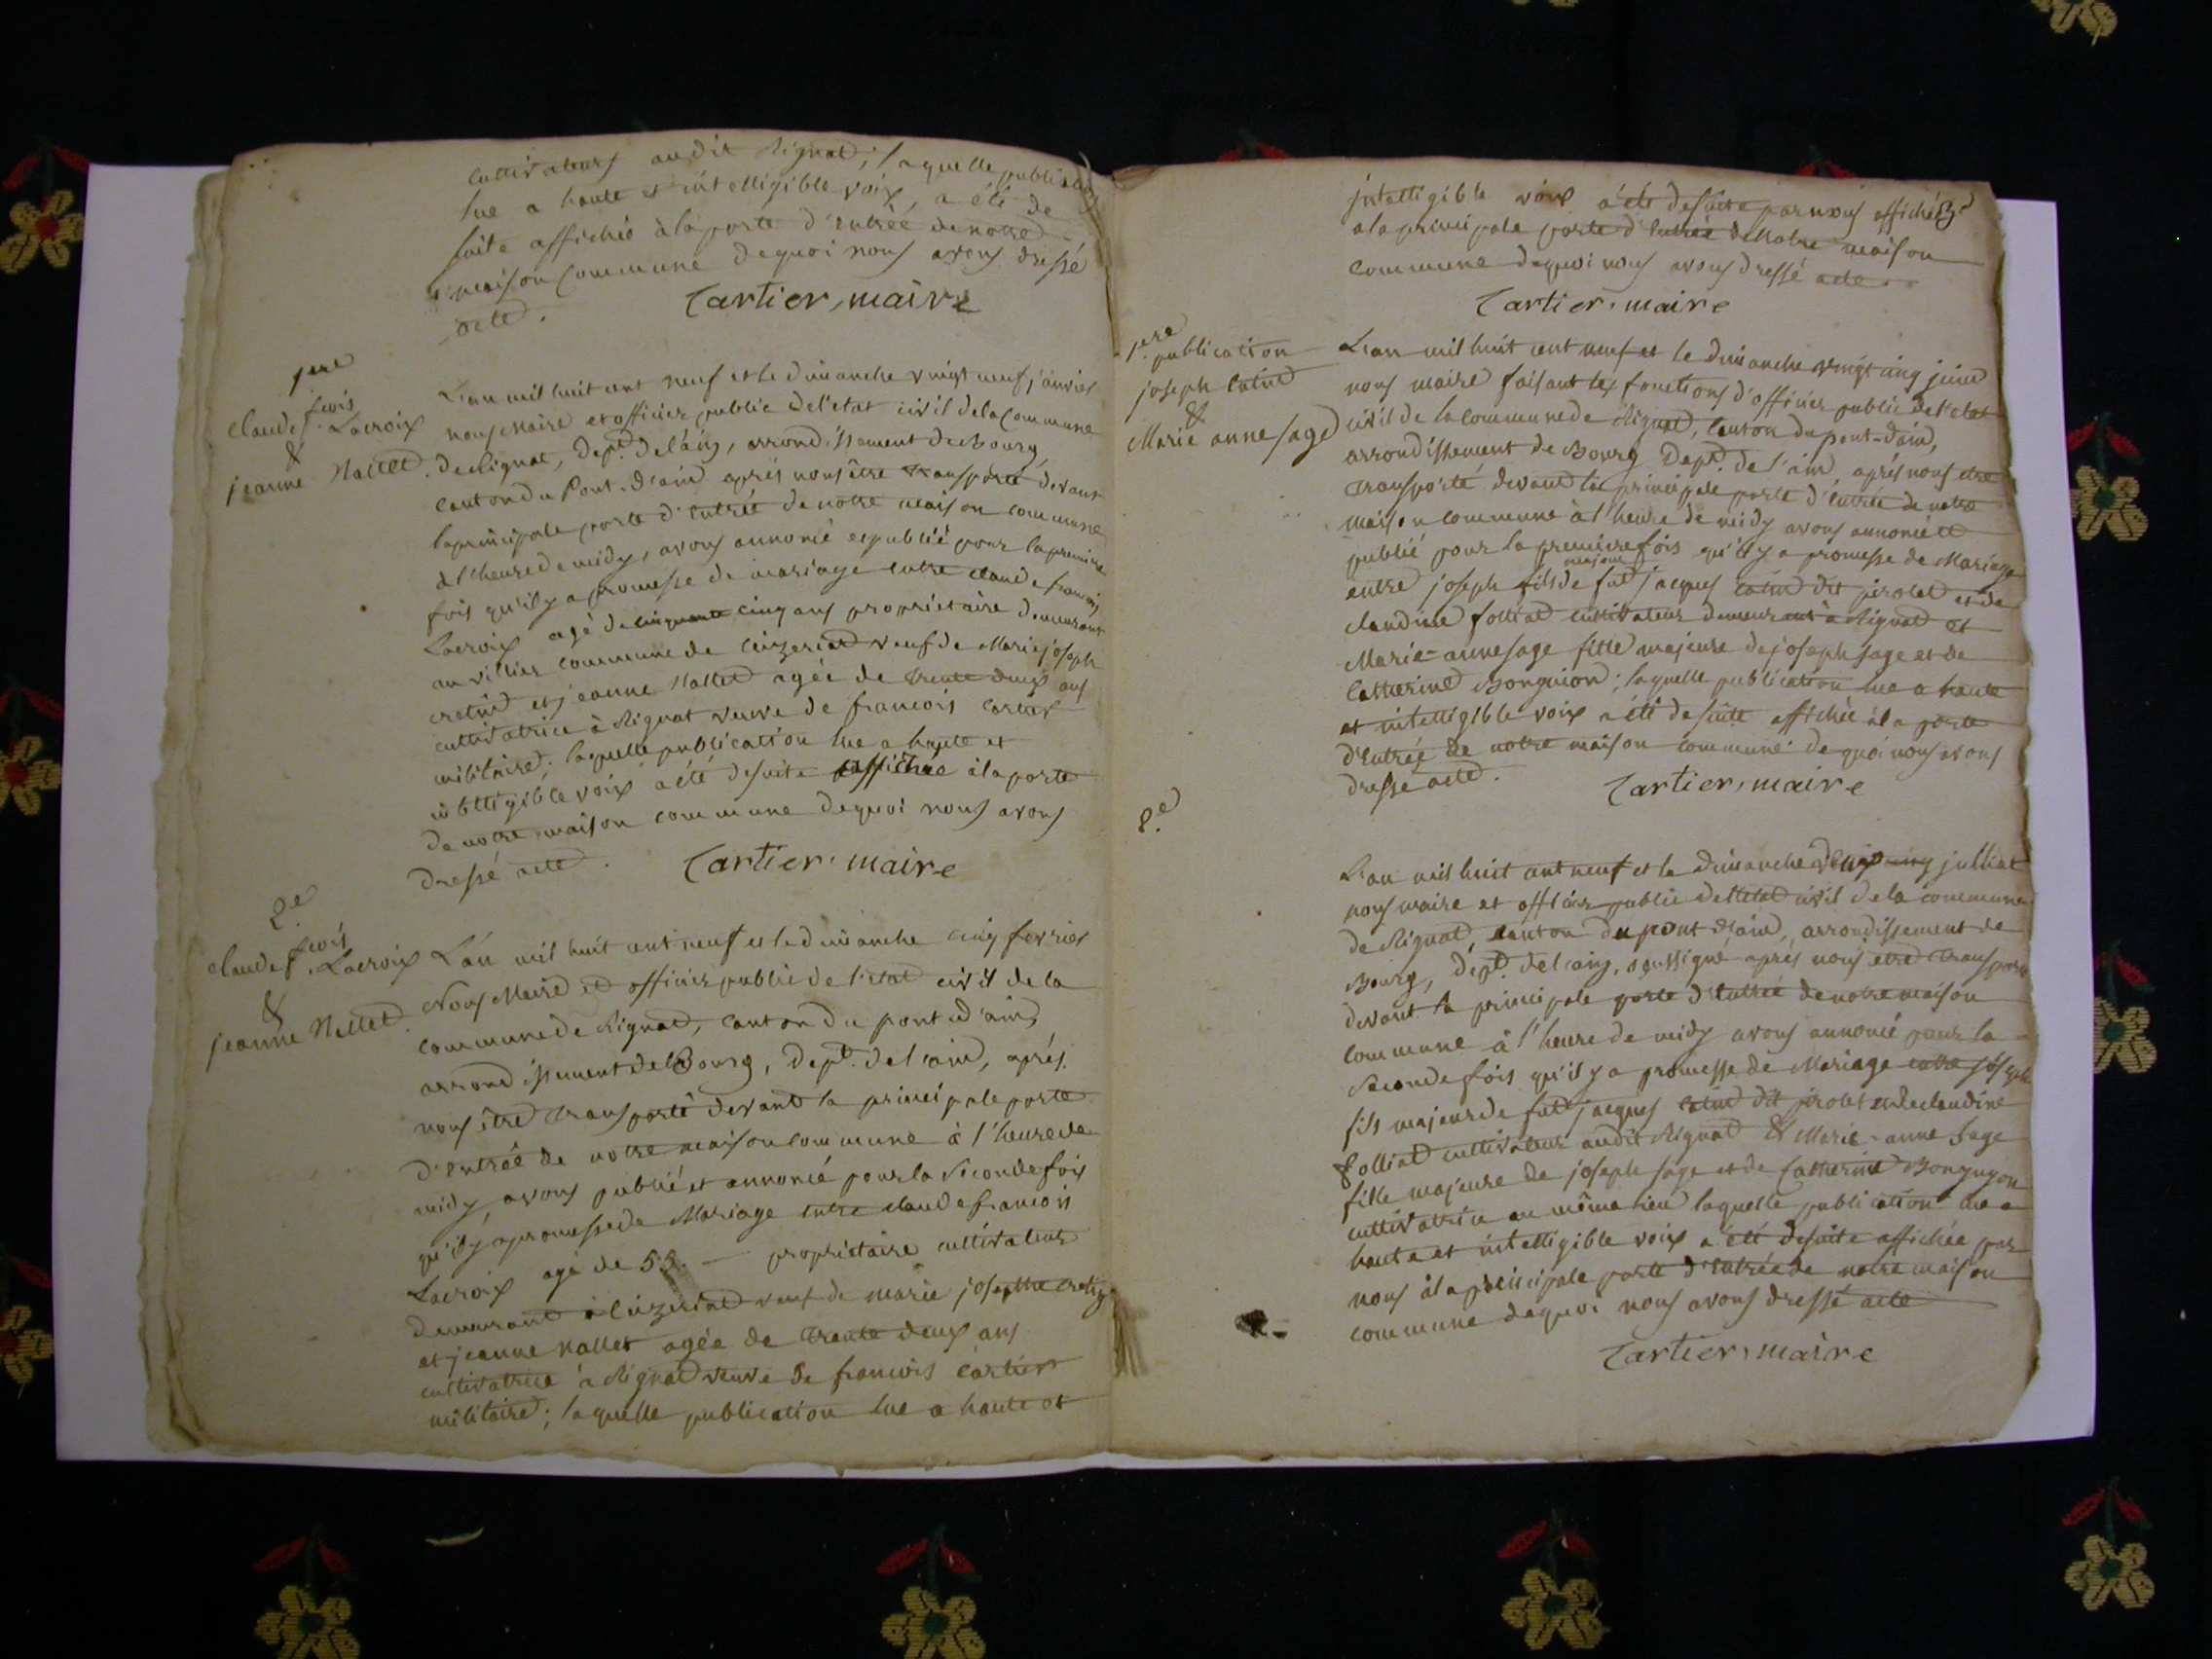 cultivateurs audit Rignat; laquelle publication
lue a haute et intelligible voix, a été de
suite affichée à la porte d'entrée de notre
maison commune dequoi nous avons dressé
acte. Cartier, maire
1ere
claude fcois Lacroix
&
jeanne Nallet.
L'an mil huit cent neuf et le dimanche vingt neuf janvier
nous Maire et officier public de l'etat civil de la Commune
de Rignat, Dept. de l'ain, arrondissement de Bourg,
canton du Pont-d'ain après nous être transporté devant
la principale porte d'entrée de notre maison commune
à l'heure de midy, avons annoncé et publié pour la premiere
fois qu'il y a promesse de mariage entre claude francois
Lacroix agé de cinquante cinq ans propriétaire demeurant
au villier commune de Ceyzeriat veuf de Marie joseph
cretin et jeanne Nallet agée de trente deux ans
cultivatrice à Rignat veuve de francois Cartier
militaire; laquelle publication lue a haute et
intelligible voix a été de suite affichée à la porte
de notre maison commune dequoi nous avons
dressé acte. Cartier, maire
2.e
claude fcois Lacroix
&
jeanne Nallet.
L'an mil huit cent neuf et le dimanche cinq fevrier
Nous Maire et officier public de l'etat civil de la
commune de Rignat, canton du pont d'ain,
arrondissement de Bourg, Dept. de l'ain, après
nous être transporté devant la principale porte
d'entrée de notre maison commune à l'heure de
midy, avons publié et annoncé pour la Seconde fois
qu'il y a promesse de Mariage entre claude francois
Lacroix agé de 55. — propriétaire cultivateur
demeurant à Ceyzeriat veuf de marie josepthe cretin
et jeanne Nallet agée de trente deux ans
cultivatrice à Rignat veuve de francois cartier
militaire; laquelle publication lue a haute et
intelligible voix a été de suite par nous affichée
a la principale porte d'entrée de Notre maison
commune dequoi nous avons dressé acte..
Cartier, maire
1ere publication
joseph
&
Marie anne sage
L'an mil huit cent neuf et le dimanche vingt cinq juin
nous maire faisant les fonctions d'officier public de l'etat
civil de la commune de Rignat, canton du pont-d'ain,
arrondissement de Bourg Dept. de l'ain, après nous etre
transporté devant la principale porte d'entrée de notre
maison commune à l'heure de midy avons annoncé et
publié pour la premiere fois qu'il y a promesse de Mariage
entre joseph fils majeur de fut jacques dit pirolet et de
claudine folliat cultivateur demeurant à Rignat et
Marie-anne sage fille majeure de joseph sage et de
Catherine Bonguion; laquelle publication lue a haute
et intelligible voix a été de suite affichée à la porte
d'entrée de notre maison commune de quoi nous avons
dressé acte. Cartier, maire
2.e
L'an mil huit cent neuf et le dimanche deux julliet
nous maire et officier public de l'etat civil de la commune
de Rignat, canton du pont d'ain, arrondissement de
Bourg, dépt. de l'ain, soussigné après nous etre transporté
devant la principale porte d'entrée de notre maison
commune à l'heure de midy avons annoncé pour la
Seconde fois qu'il y a promesse de Mariage entre joseph
fils majeur de fut jacques dit pirolet et de claudine
folliat cultivateur audit Rignat & Marie-anne Sage
fille majeure de joseph sage et de Catherine Bonguyon
cultivatrice au même lieu laquelle publication lue a
haute et intelligible voix a été de suite affichée par
nous à la principale porte d'entrée de notre maison
commune dequoi nous avons dressé acte
Cartier, maire